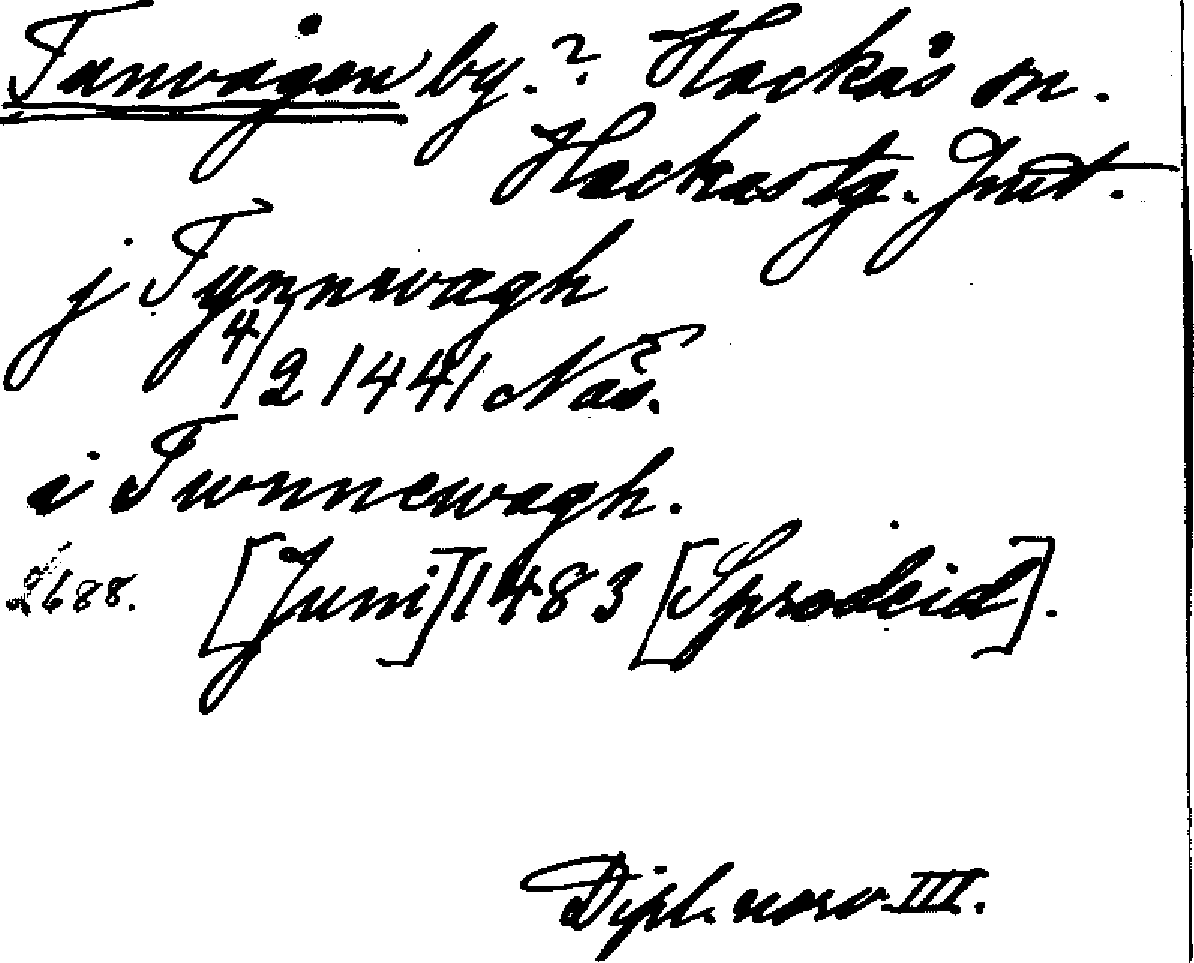 Fanvågen by.? Hackås sn.
Hackås tg. Jmt.
j Fynnewagh
4/2 1441 Näs.
i Funnewagh.
2688. [Juni] 1483 [Sprodeid].
Dipl. norv. III.